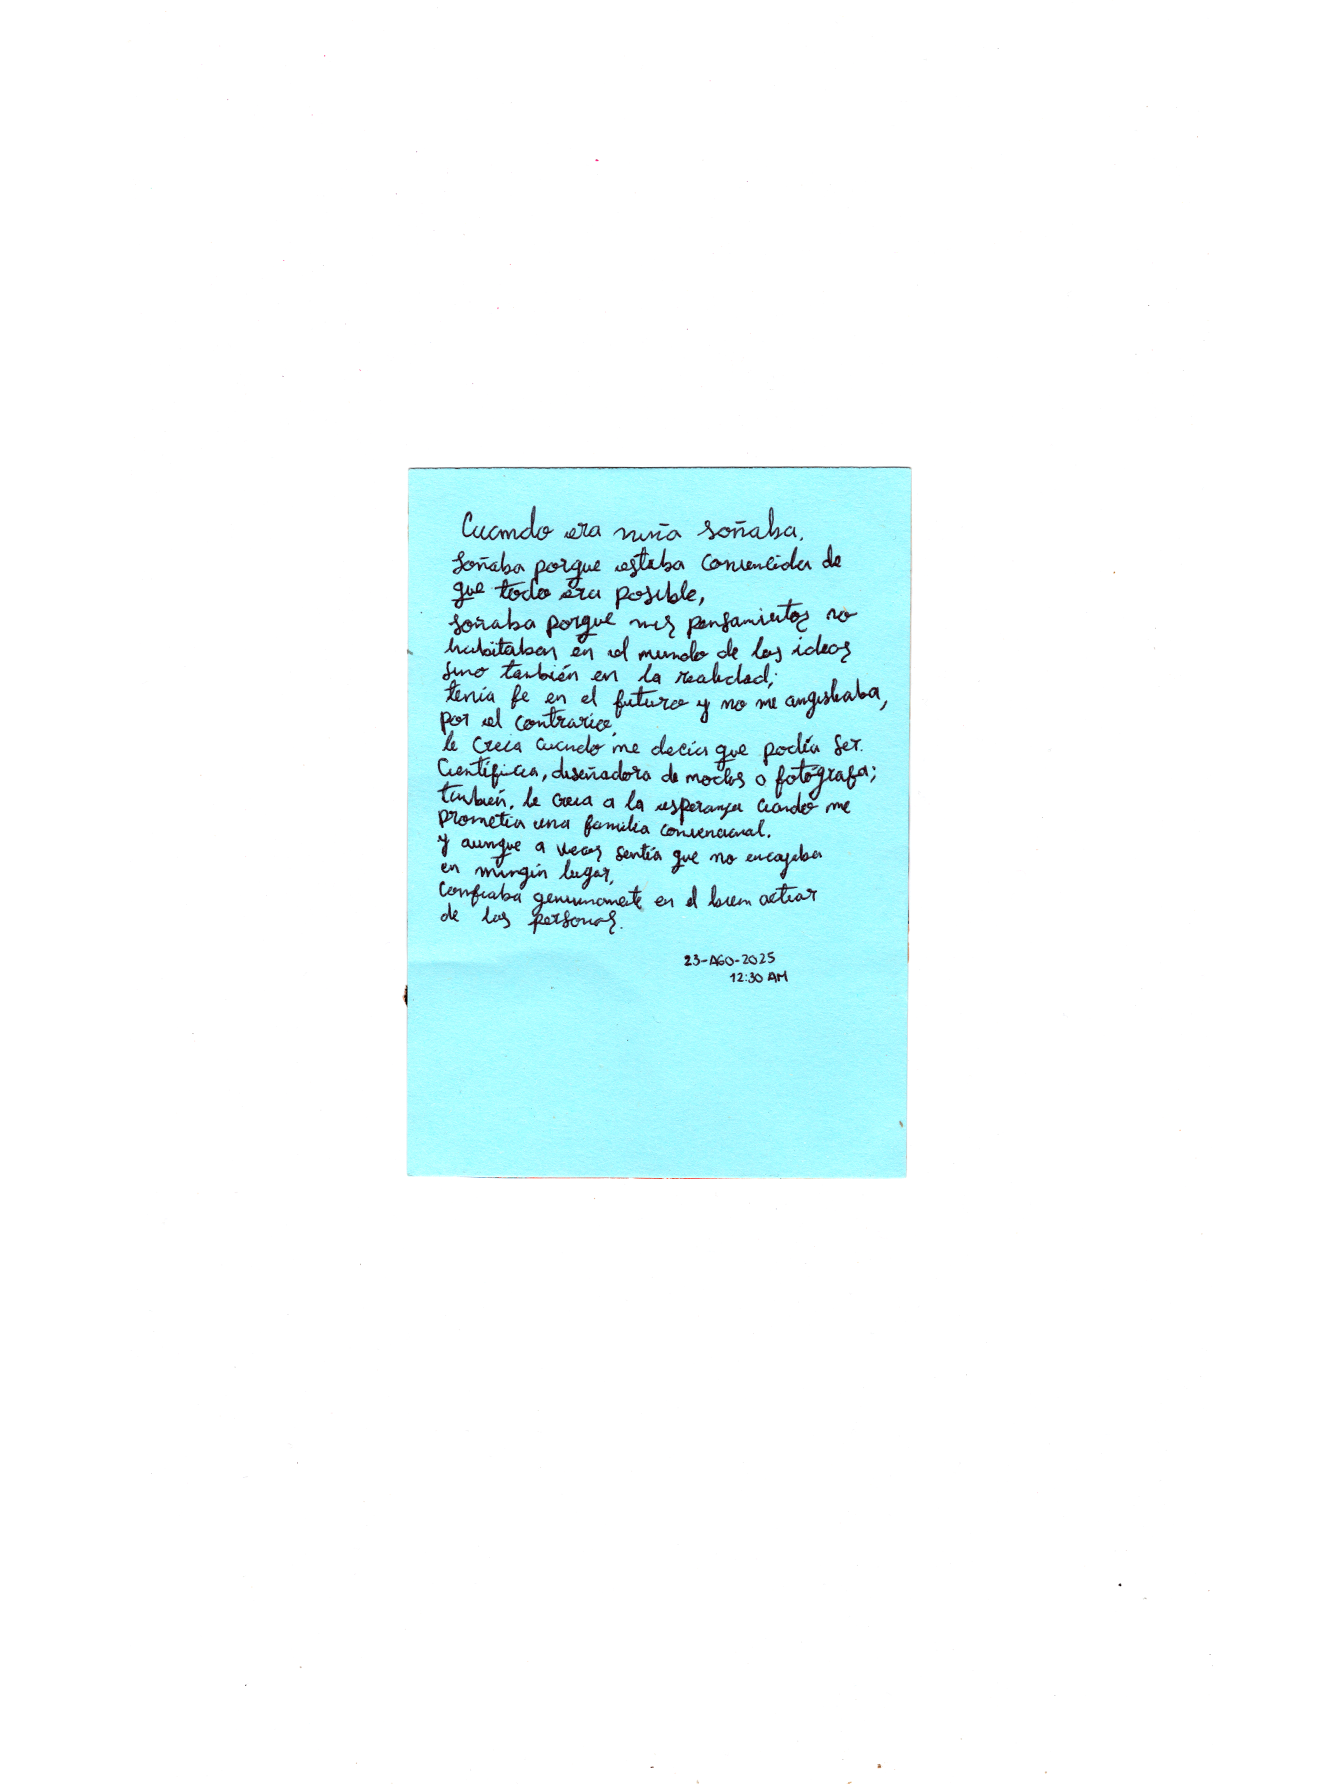 Cuando era niña soñaba.
Soñaba porque estaba convencida de
que todo era posible,
soñaba porque mis pensamientos no
habitaban en el mundo de las ideas
sino también en la realidad;
tenía fe en el futuro y no me angustiaba,
por el contrario,
le creía cuando me decía que podía ser
científica, diseñadora de modas o fotógrafa;
también, le creía a la esperanza cuando me
prometía una familia convencional.
y aunque a veces sentía que no encajaba
en ningún lugar,
confiaba genuinamente en el buen actuar
de las personas.
23-AGO-2025
12:30 AM